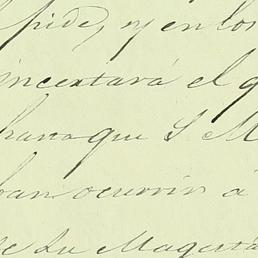 pide, y en los
incertará el q
para que S. M
ban ocurrir á
de Su Magesta